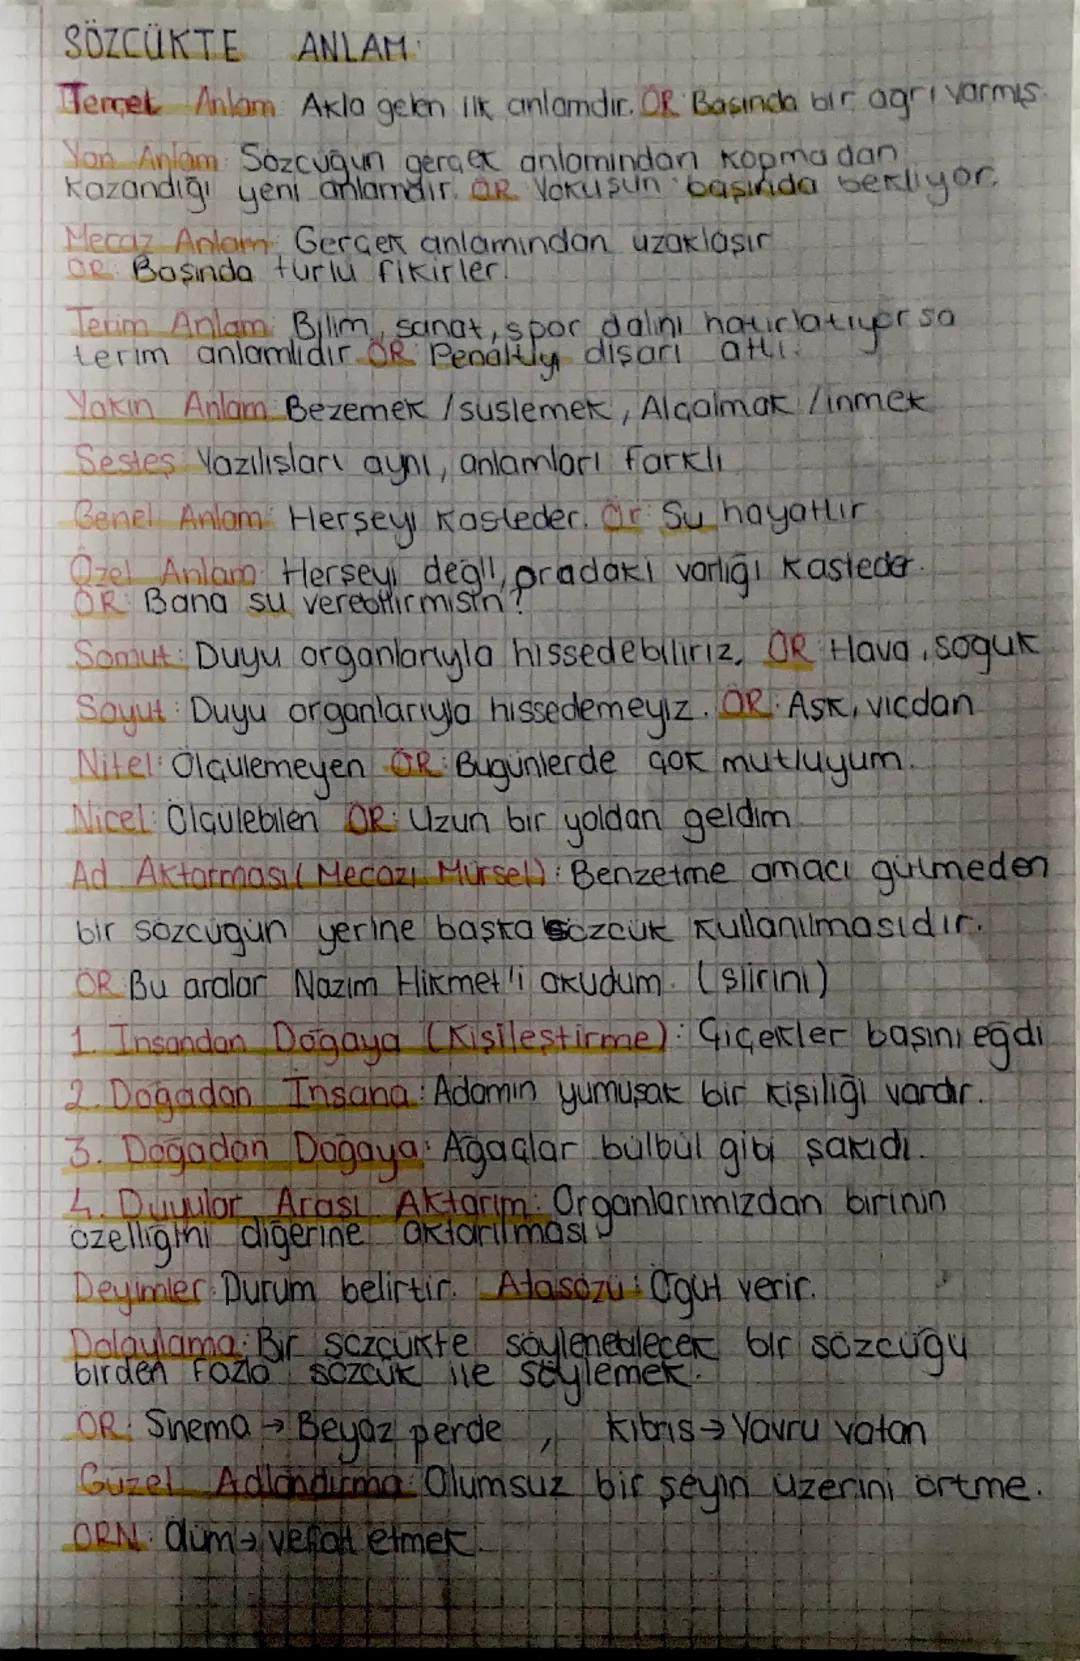 SÖZCÜKTE ANLAM:
Temel Anlam: Akla gelen ilk anlamdır. ÖR: Başında bir ağrı varmış.
Yan Anlam: Sözcüğün gerçek anlamından kopmadan
kazandığı yeni anlamdır. ÖR: Yokuşun başında bekliyor.
Mecaz Anlam: Gerçek anlamından uzaklaşır
ÖR: Başında türlü fikirler.
Terim Anlam: Bilim, sanat, spor dalını hatırlatıyorsa
terim anlamlıdır ÖR: Penaltıyı dışarı attı.
Yakın Anlam: Bezemek / süslemek, Alçalmak / inmek
Sesteş Yazılışları aynı, anlamları farklı
Genel Anlam: Herşeyi kasteder. Ör: Su hayattır
Özel Anlam: Herşeyi değil, oradaki varlığı kasteder.
ÖR: Bana su verebilirmisin?
Somut: Duyu organlarıyla hissedebiliriz. ÖR: Hava, soğuk
Soyut: Duyu organlarıyla hissedemeyiz. ÖR: Aşk, vicdan
Nitel: Ölçülemeyen ÖR: Bugünlerde çok mutluyum.
Nicel: Ölçülebilen ÖR: Uzun bir yoldan geldim
Ad Aktarması (Mecazı Mürsel): Benzetme amacı gütmeden
bir sözcüğün yerine başka sözcük kullanılmasıdır.
ÖR: Bu aralar Nazım Hikmet'i okudum. (şiirini)
1. İnsandan Doğaya (Kişileştirme): Çiçekler başını eğdi
2. Doğadan İnsana: Adamın yumuşak bir kişiliği vardır.
3. Doğadan Doğaya: Ağaçlar bülbül gibi şakıdı.
4. Duyular Arası Aktarım: Organlarımızdan birinin
özelliğini diğerine aktarılması
Deyimler: Durum belirtir. Atasözü: Öğüt verir.
Dolaylama: Bir sözcükte söylenebilecek bir sözcüğü
birden fazla sözcük ile söylemek.
ÖR: Sinema → Beyaz perde, Kıbrıs → Yavru vatan
Güzel Adlandırma: Olumsuz bir şeyin üzerini örtme.
ÖRN: Ölüm → vefat etmek